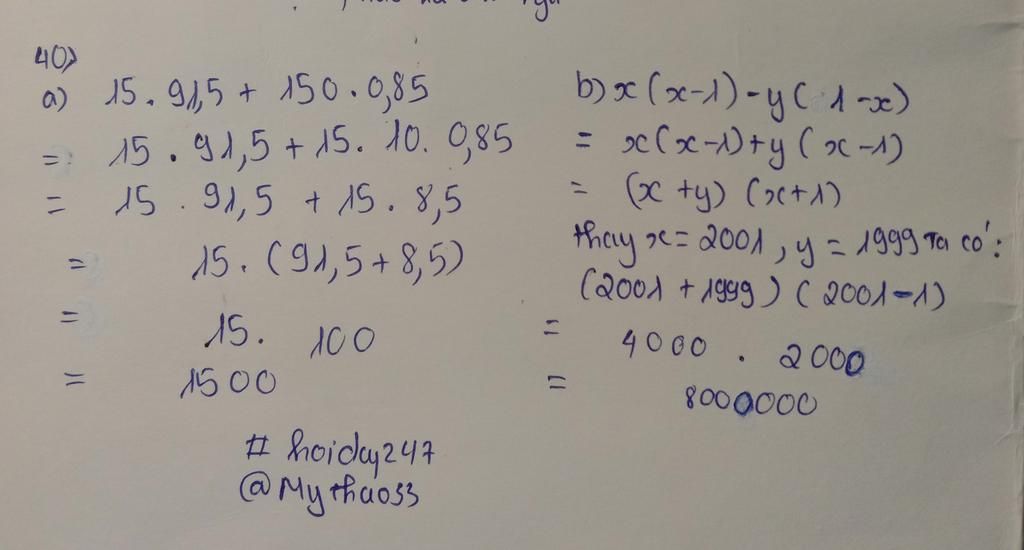 40)
a) 15 . 91,5 + 150 . 0,85
= 15 . 91,5 + 15 . 10 . 0,85
= 15 . 91,5 + 15 . 8,5
= 15 . (91,5 + 8,5)
= 15 . 100
= 1500
b) x(x-1) - y(1-x)
= x(x-1) + y(x-1)
= (x+y) (x+1)
thay x = 2001, y = 1999 ta có:
(2001 + 1999) (2001-1)
= 4000 . 2000
= 8000000
# hoiday247
@Mythao33